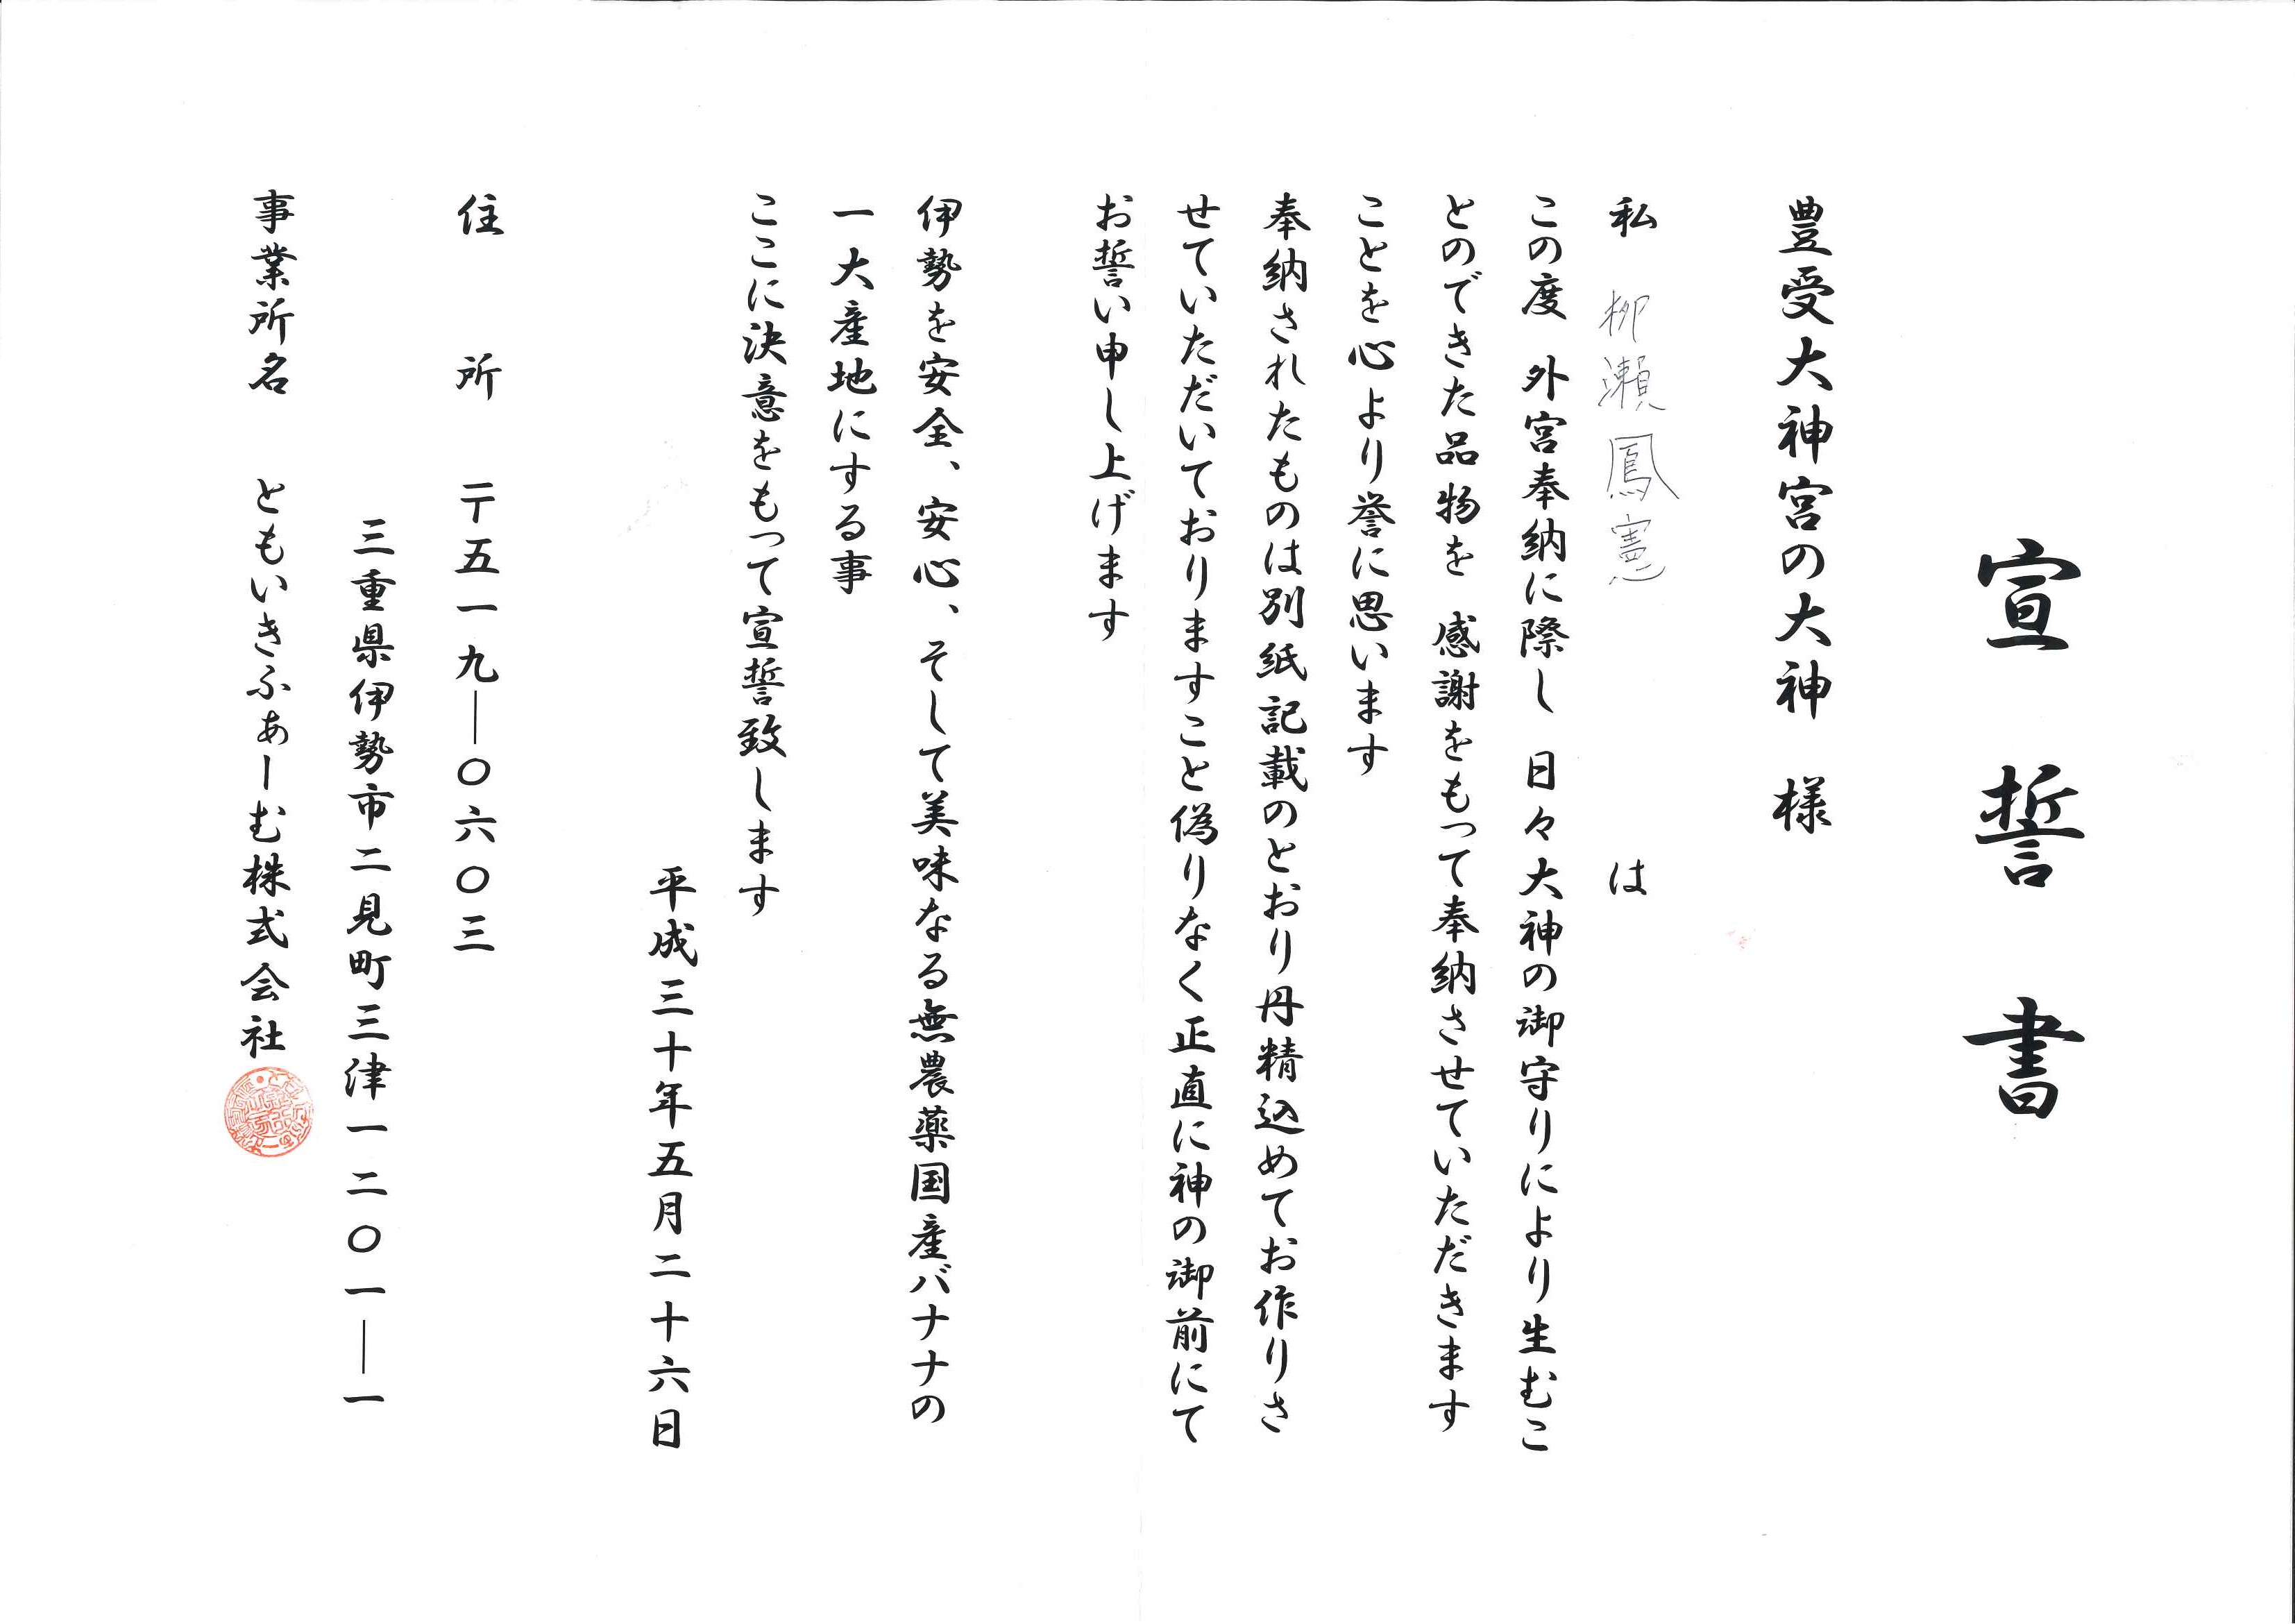 宣誓書
豊受大神宮の大神　様
私　柳瀬鳳憲　は
この度　外宮奉納に際し　日々大神の御守りにより生むこ
とのできた品物を　感謝をもって奉納させていただきます
ことを心より誉に思います
奉納されたものは別紙記載のとおり丹精込めてお作りさ
せていただいておりますこと偽りなく正直に神の御前にて
お誓い申し上げます
伊勢を安全、安心、そして美味なる無農薬国産バナナの
一大産地にする事
ここに決意をもって宣誓致します
平成三十年五月二十六日
住　所　〒五一九―〇六〇三
三重県伊勢市二見町三津一二〇一―一
事業所名　ともいきふぁーむ株式会社